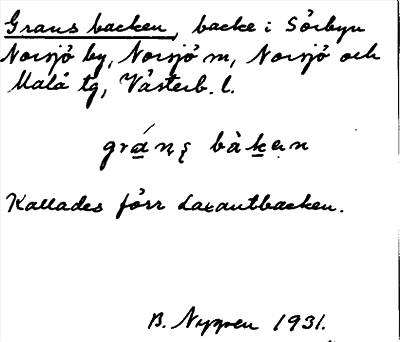 Grans backen, backe i Sörbyn
Norsjö by, Norsjö sn, Norsjö och
Malå tg, Västerb. l.
Kallades förr Laxantbacken.
B. Nygren 1931.